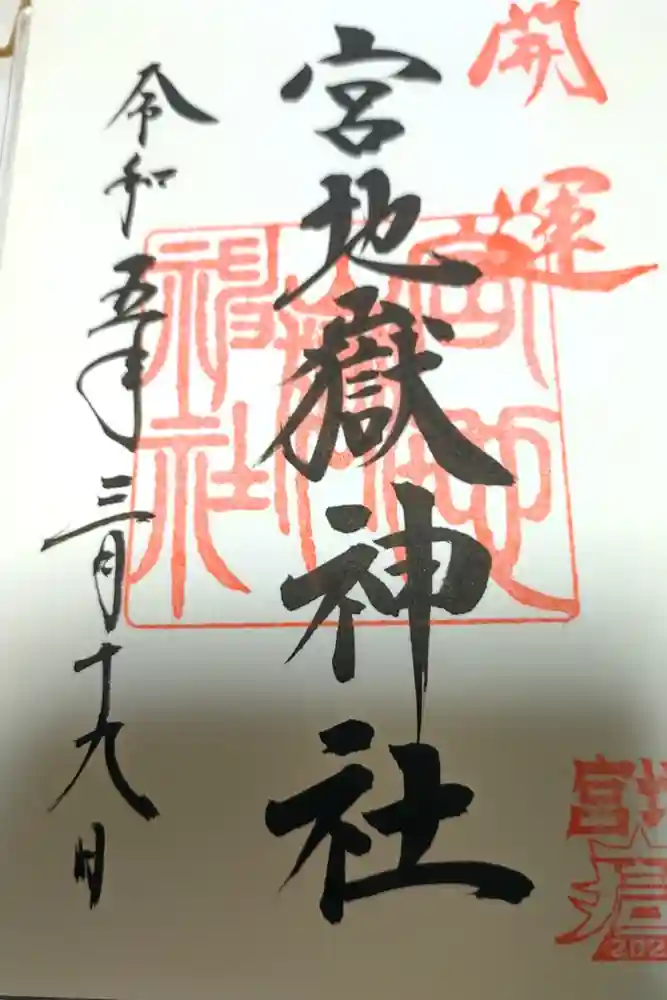 開運
宮地嶽神社
宮地嶽神社
令和五年三月十九日
宮地
嶽
202